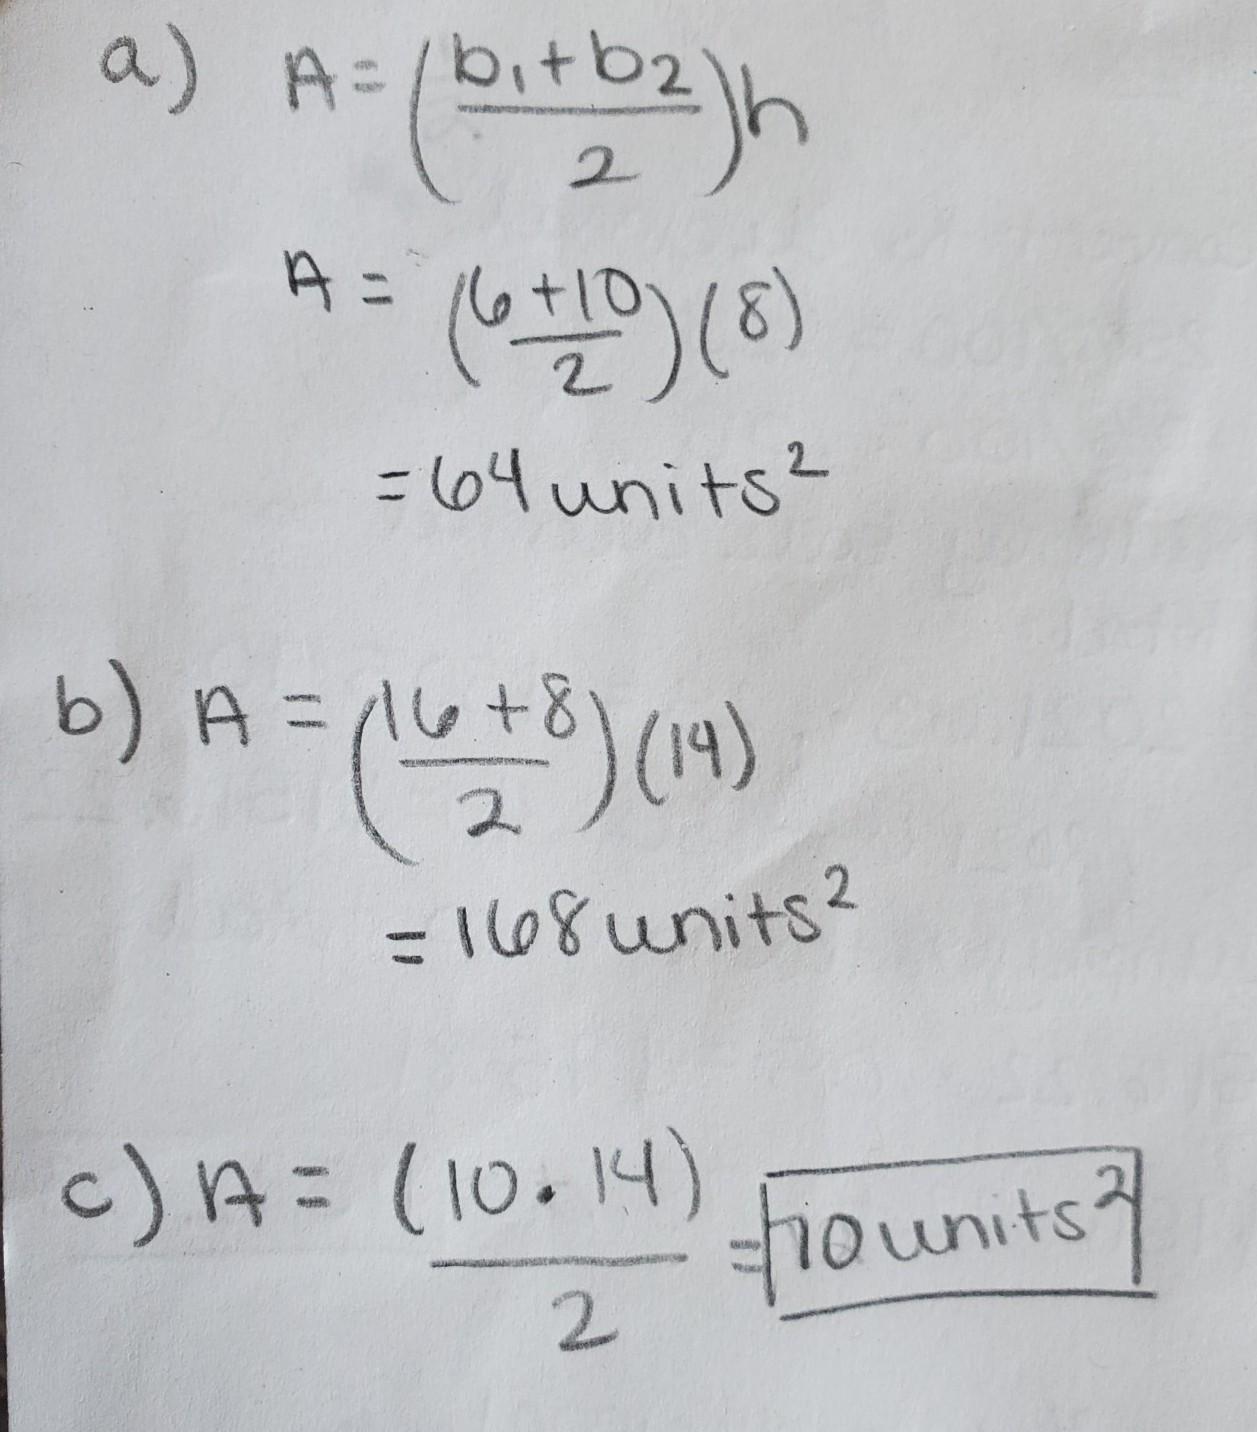 a) A = (b₁+b₂/2)h
A = (6+10/2)(8)
= 64 units²
b) A = (16+8/2)(14)
= 168 units²
c) A = (10·14)/2 = 70 units²